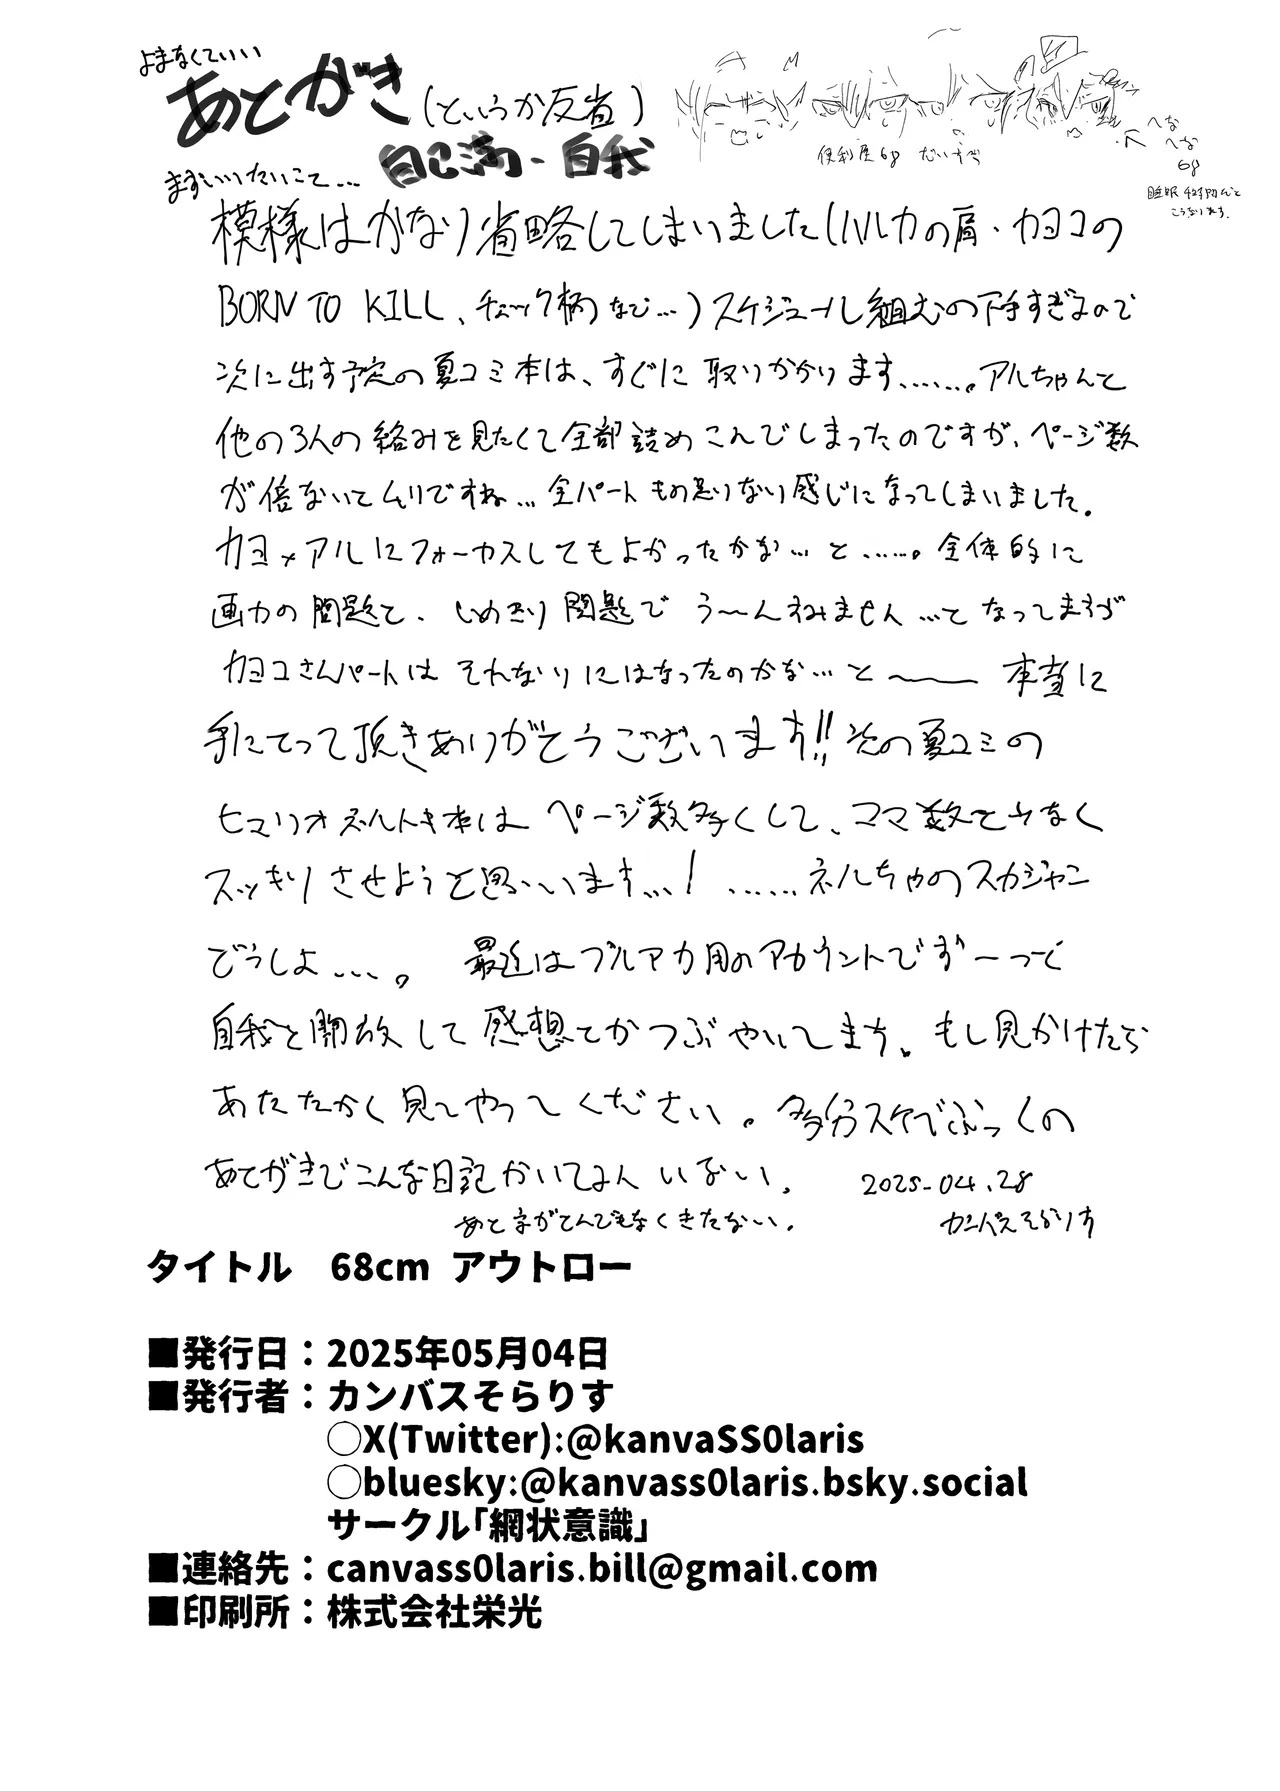 よまなくていい
あとがき(というか反省)
自己満・自我
便利屋68 だいすき
へな
へな
68
まずいいたいこと…
睡眠
こうなります。
模様はかなり省略してしまいました(ハルカの肩・カヨコの
BORN TO KILL、チェック柄など…)スケジュール組むの下手すぎるので
次に出す予定の夏コミ本は、すぐに取りかかります……。アルちゃんと
他の3人の絡みを見たくて全部詰めこんでしまったのですが、ページ数
が倍ないとムリですね…全パートもの足りない感じになってしまいました。
カヨ×アルにフォーカスしてもよかったかな…と……。全体的に
画力の問題と、しめきり問題でう〜んすみません…となってますが
カヨコさんパートはそれなりにはなったのかな…と〜〜 本当に
手にとって頂きありがとうございます!!次の夏コミの
ヒマリオネルトキ本はページ数多くして、コマ数を少なく
スッキリさせようと思います…! ……ネルちゃのスカジャン
どうしよ…。 最近はブルアカ用のアカウントでずーっと
自我を開放して感想とかつぶやいてます。もし見かけたら
あたたかく見てやってください。多分スケベぶっくの
あとがきでこんな日記かいてる人いない。 2025.04.28
あと字がとんでもなくきたない。 カンバスそらりす
タイトル 68cm アウトロー
■発行日：2025年05月04日
■発行者：カンバスそらりす
○X(Twitter):@kanvaSS0laris
○bluesky:@kanvass0laris.bsky.social
サークル「網状意識」
■連絡先：canvass0laris.bill@gmail.com
■印刷所：株式会社栄光